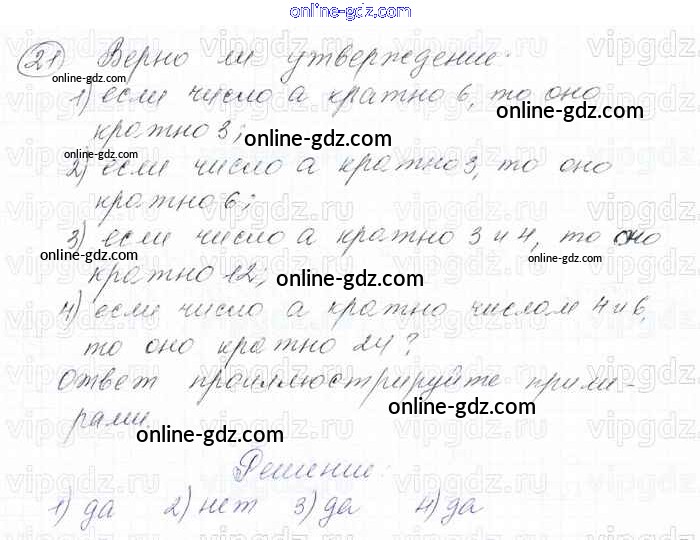 online-gdz.com
21) Верно ли утверждение:
online-gdz.com
1) если число а кратно 6, то оно
кратно 3;
online-gdz.com
online-gdz.com
2) если число а кратно 3, то оно
кратно 6;
online-gdz.com
3) если число а кратно 3 и 4, то оно
online-gdz.com
кратно 12;
online-gdz.com
4) если число а кратно числам 4 и 6,
то оно кратно 24?
online-gdz.com
Ответ проиллюстрируйте приме-
рами.
online-gdz.com
online-gdz.com
Решение:
1) да 2) нет 3) да 4) да
online-gdz.com
vipgdz.ru